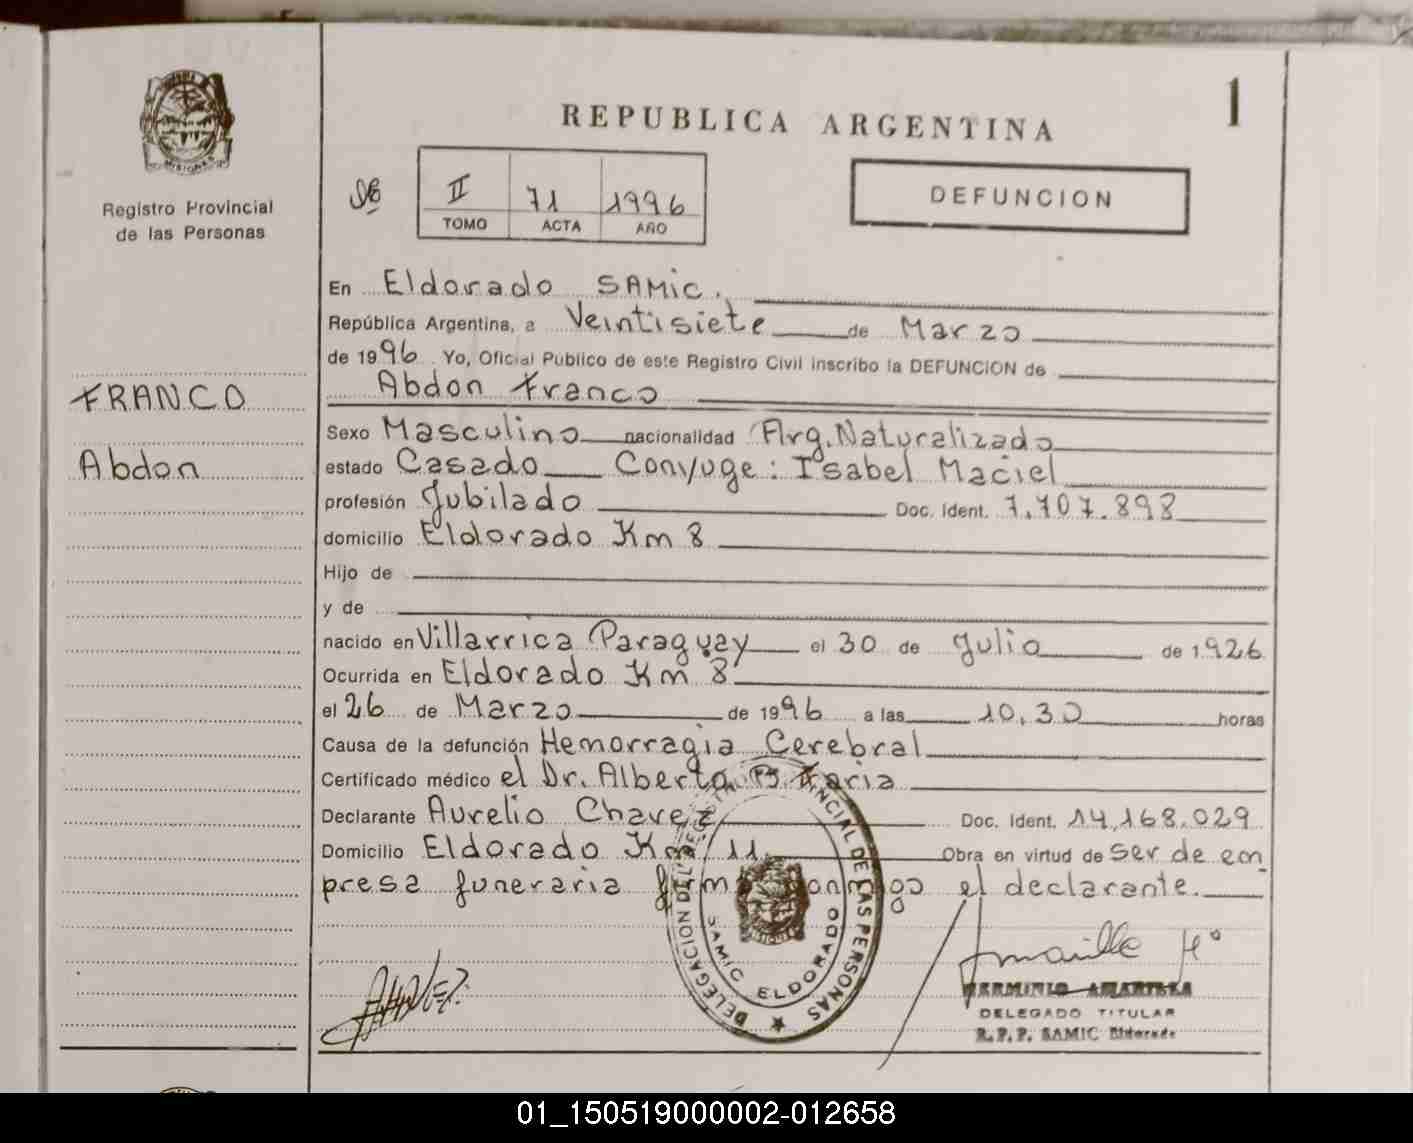 1
REPUBLICA ARGENTINA
MISIONES
Registro Provincial
de las Personas
II 71 1996
TOMO ACTA AÑO
DEFUNCION
En Eldorado SAMic.
República Argentina, a Veintisiete de Marzo
de 1996 Yo, Oficial Público de este Registro Civil inscribo la DEFUNCION de
Abdon Franco
FRANCO
Abdon
Sexo Masculino nacionalidad Arg. Naturalizado
estado Casado Conyuge: Isabel Maciel
profesión Jubilado Doc. Ident. 7.707.898
domicilio Eldorado Km 8
Hijo de
y de
nacido en Villarrica Paraguay el 30 de Julio de 1.926
Ocurrida en Eldorado Km 8
el 26 de Marzo de 1996 a las 10,30 horas
Causa de la defunción Hemorragia Cerebral
Certificado médico el Dr. Alberto Faria
Declarante Aurelio Chavez Doc. Ident. 14.168.029
Domicilio Eldorado Km 11 Obra en virtud de Ser de em
presa funeraria firma conmigo el declarante.
DELEGACION DEL REGISTRO PROVINCIAL DE LAS PERSONAS
SAMIC ELDORADO
HERMINIO AMARILLA
DELEGADO TITULAR
R.P.P. SAMIC Eldorado
01_150519000002-012658